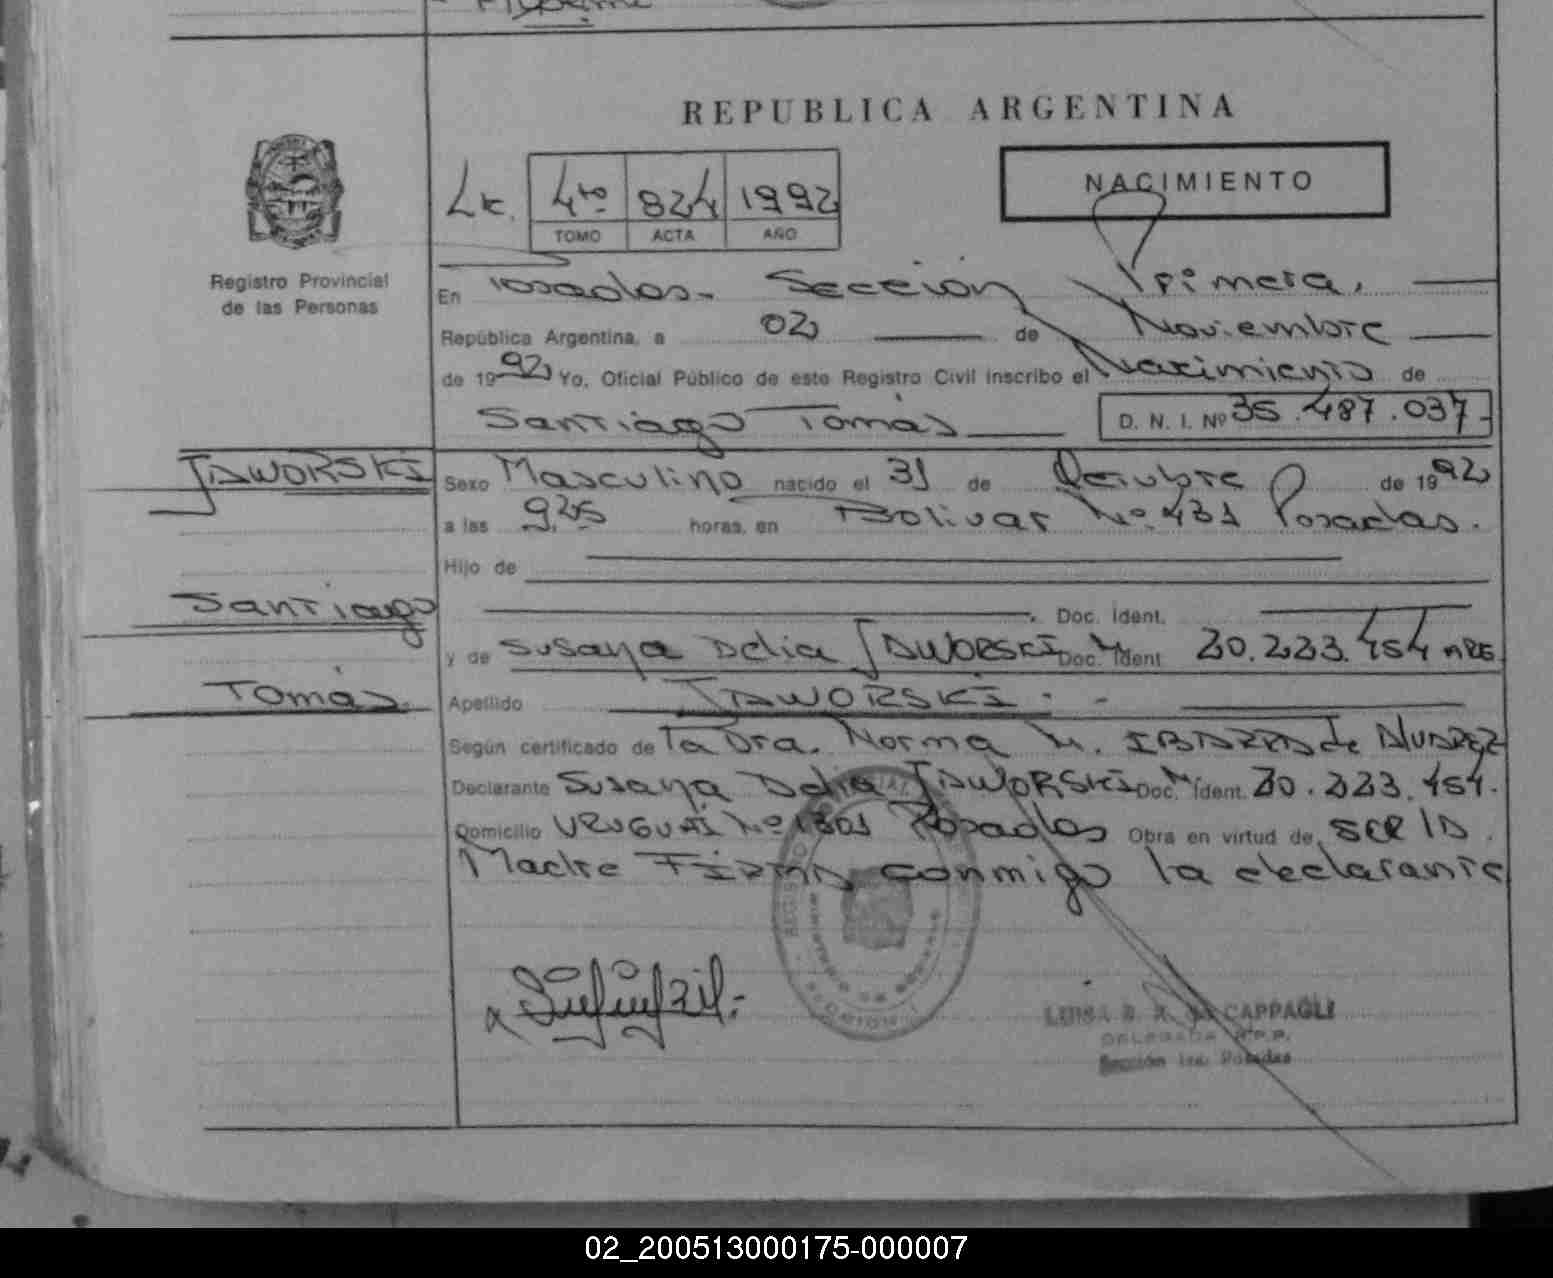 REPUBLICA ARGENTINA
NACIMIENTO
4to 824 1992
TOMO ACTA AÑO
Registro Provincial
de las Personas
En Posadas. Sección Primera.
República Argentina, a 02 de Noviembre
de 1992 Yo, Oficial Público de este Registro Civil inscribo el Nacimiento de
Santiago Tomás D. N. I. Nº 35.487.037
JAWORSKI
Sexo Masculino nacido el 31 de Octubre de 1992
a las 9,25 horas, en Bolivar Nº 431 Posadas.
Hijo de
Santiago
Doc. Ident.
y de Susana Delia JAWORSKI Doc. Ident. 20.223.454
Tomás.
Apellido JAWORSKI
Según certificado de la Dra. Norma M. IBARRA de
Declarante Susana Delia JAWORSKI Doc. Ident. 20.223.454.
Domicilio URUGUAI Nº 1301 Posadas Obra en virtud de ser la
Madre FIRMA conmigo la declarante
CAPPAGLI
DELEGADA R.P.P.
Sección 1ra. Posadas
02_200513000175-000007